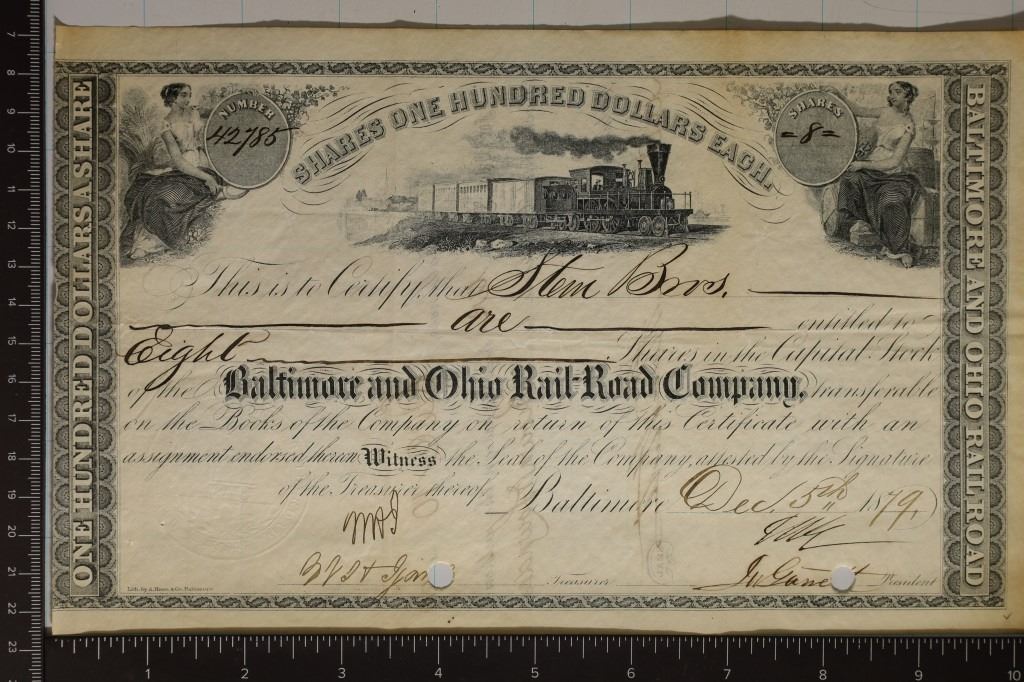 ONE HUNDRED DOLLARS A SHARE
NUMBER
42785
SHARES ONE HUNDRED DOLLARS EACH.
SHARES
=8=
BALTIMORE AND OHIO RAIL ROAD
This is to Certify, that Stem Bros.
are entitled to
Eight Shares in the Capital Stock
of the Baltimore and Ohio Rail-Road Company, transferable
on the Books of the Company on return of this Certificate with an
assignment endorsed thereon Witness the Seal of the Company, attested by the Signature
of the Treasurer thereof Baltimore Dec. 5th 1879.
Treasurer
President
Lith. by A. Hoen & Co. Baltimore
7
8
9
10
11
12
13
14
15
16
17
18
19
20
21
22
23
1 2 3 4 5 6 7 8 9 10